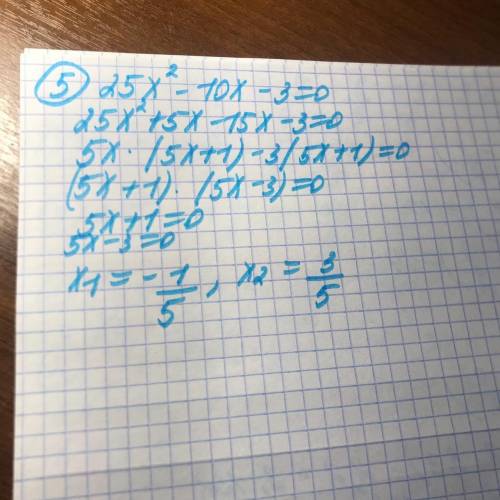 ⑤ 25x² - 10x - 3 = 0
25x² + 5x - 15x - 3 = 0
5x · (5x + 1) - 3(5x + 1) = 0
(5x + 1) · (5x - 3) = 0
5x + 1 = 0
5x - 3 = 0
x₁ = - 1/5 , x₂ = 3/5